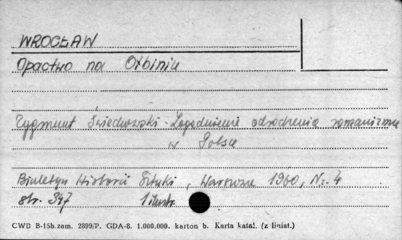 WROCŁAW
Opactwo na Ołbiniu
Zygmunt Świechowski - Zagadnienie odrodzenia romanizmu
w Polsce
Biuletyn Historii Sztuki, Warszawa 1960, Nr. 4
str. 347 1 ilustr.
CWD B-15b. zam. 2899/P. GDA-8. 1.000.000. karton b. Karta katal. (z liniat.)